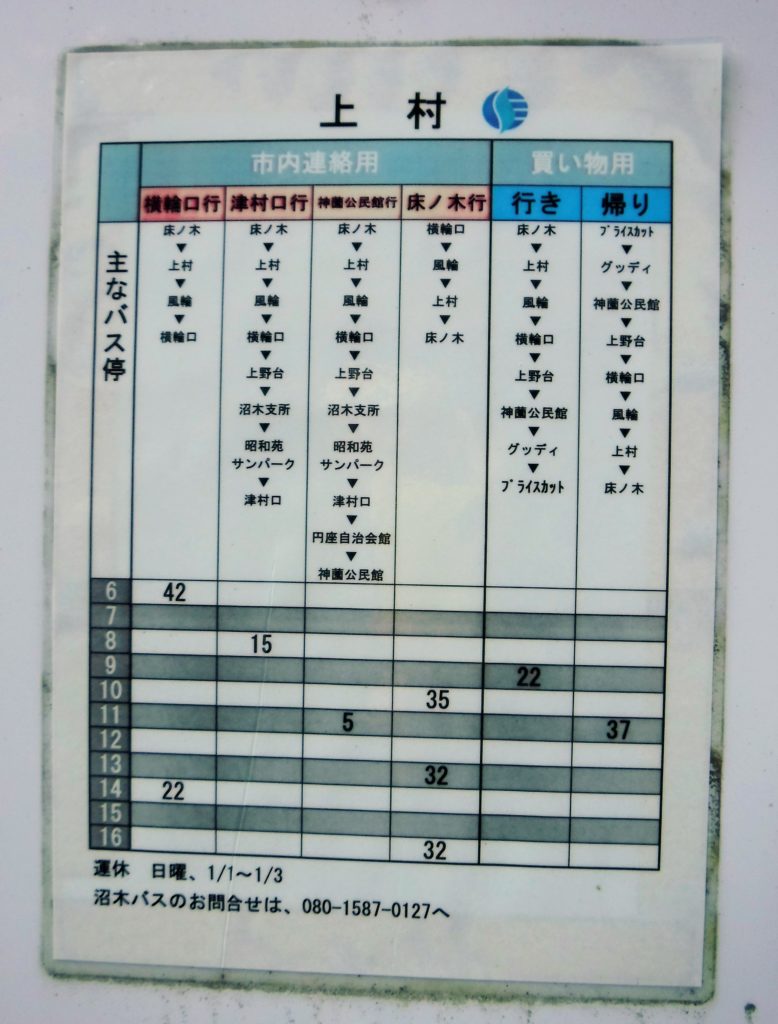 上 村
市内連絡用 買い物用
横輪口行 津村口行 神薗公民館行 床ノ木行 行き 帰り
主なバス停
床ノ木 床ノ木 床ノ木 横輪口 床ノ木 プライスカット
▼ ▼ ▼ ▼ ▼ ▼
上村 上村 上村 風輪 上村 グッディ
▼ ▼ ▼ ▼ ▼ ▼
風輪 風輪 風輪 上村 風輪 神薗公民館
▼ ▼ ▼ ▼ ▼ ▼
横輪口 横輪口 横輪口 床ノ木 横輪口 上野台
▼ ▼ ▼ ▼
上野台 上野台 上野台 横輪口
▼ ▼ ▼ ▼
沼木支所 沼木支所 神薗公民館 風輪
▼ ▼ ▼ ▼
昭和苑 昭和苑 グッディ 上村
サンパーク サンパーク ▼ ▼
▼ ▼ プライスカット 床ノ木
津村口 津村口
▼
円座自治会館
▼
神薗公民館
6 42
7
8 15
9 22
10 35
11 5 37
12
13 32
14 22
15
16 32
運休 日曜、1/1~1/3
沼木バスのお問合せは、080-1587-0127へ